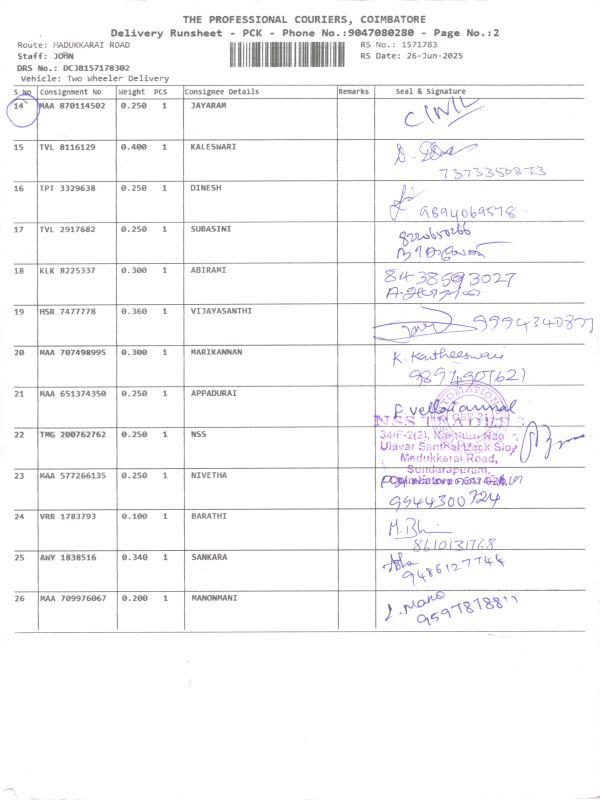 THE PROFESSIONAL COURIERS, COIMBATORE
Delivery Runsheet - PCK - Phone No.:9047080280 - Page No.:2
Route: MADUKKARAI ROAD RS No.: 1571783
Staff: JOHN RS Date: 26-Jun-2025
DRS No.: DCJB157178302
Vehicle: Two Wheeler Delivery
S No Consignment No Weight PCS Consignee Details Remarks Seal & Signature
14 MAA 870114502 0.250 1 JAYARAM CIVIL
15 TVL 8116129 0.400 1 KALESWARI
7373350873
16 TPT 3329638 0.250 1 DINESH
9894069578
17 TVL 2917682 0.250 1 SUBASINI 8220650266
18 KLK 8225337 0.300 1 ABIRAMI 8438593027
19 HSR 7477778 0.360 1 VIJAYASANTHI 9994340877
20 MAA 707498995 0.300 1 MARIKANNAN K. Kartheeswari
9897490762)
21 MAA 651374350 0.250 1 APPADURAI P. vellaiammal
NSS
22 TMG 200762762 0.250 1 NSS 34/F-2(2),
Ulavar Santhai Back Side
Madukkarai Road,
Sundarapuram,
23 MAA 577266135 0.250 1 NIVETHA
9944300724
24 VRR 1783793 0.100 1 BARATHI M. Bh
8610131768
25 AWY 1838516 0.340 1 SANKARA
9486127744
26 MAA 709976067 0.200 1 MANONMANI L. Mano
9597878811